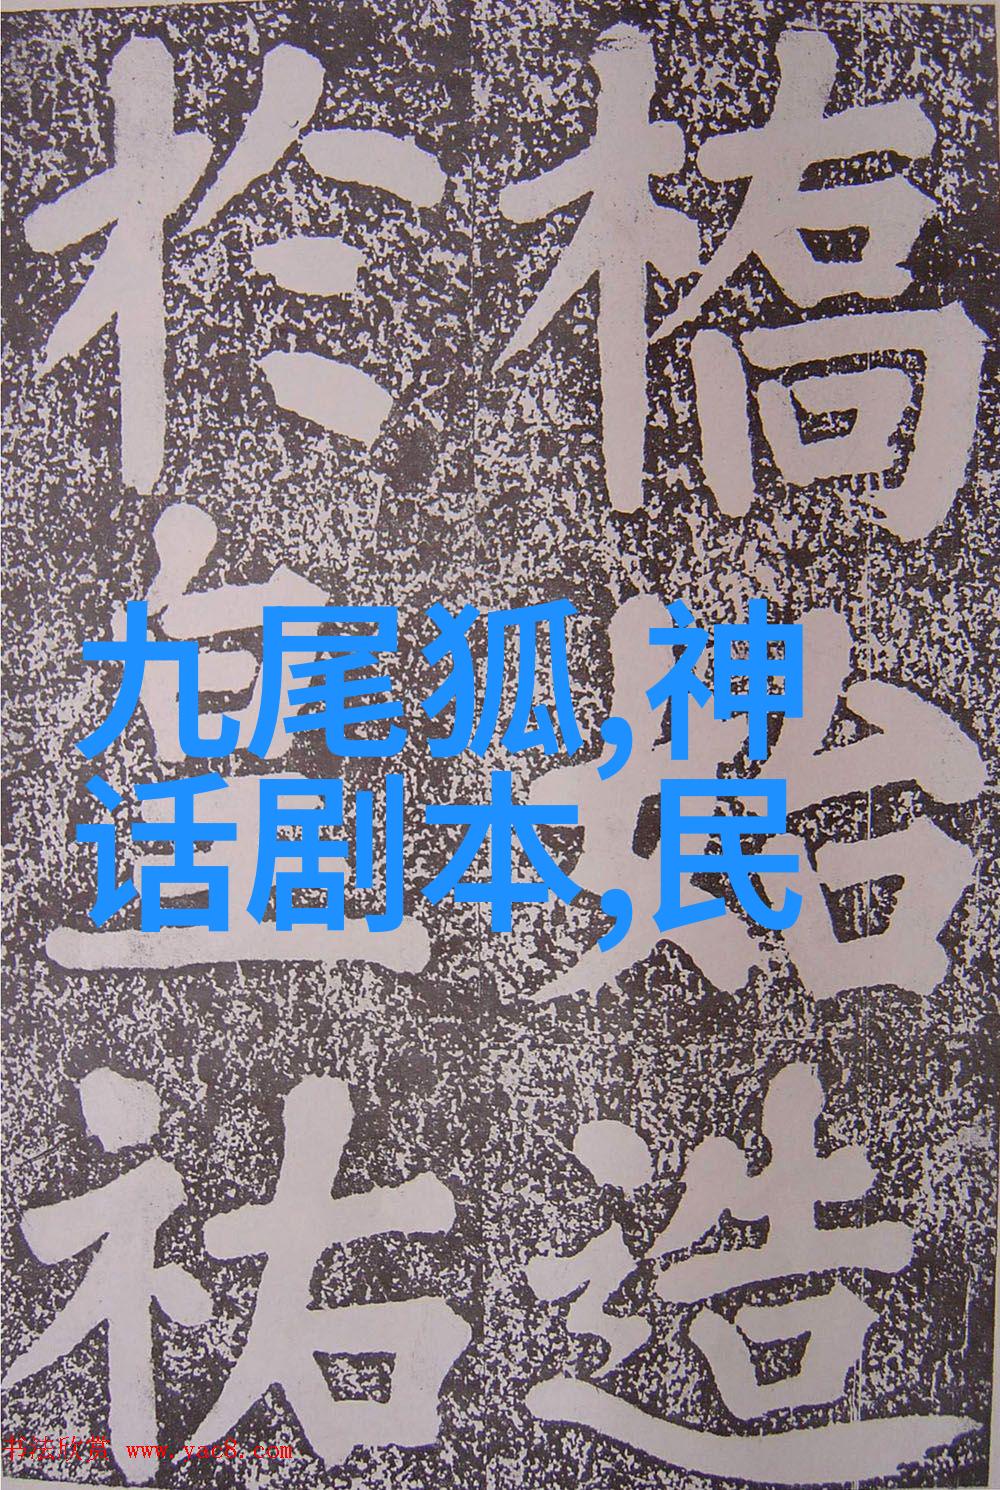 橋始造
於皇祐
九尾狐,神
话剧本,民
书法欣赏 www.yac8.com